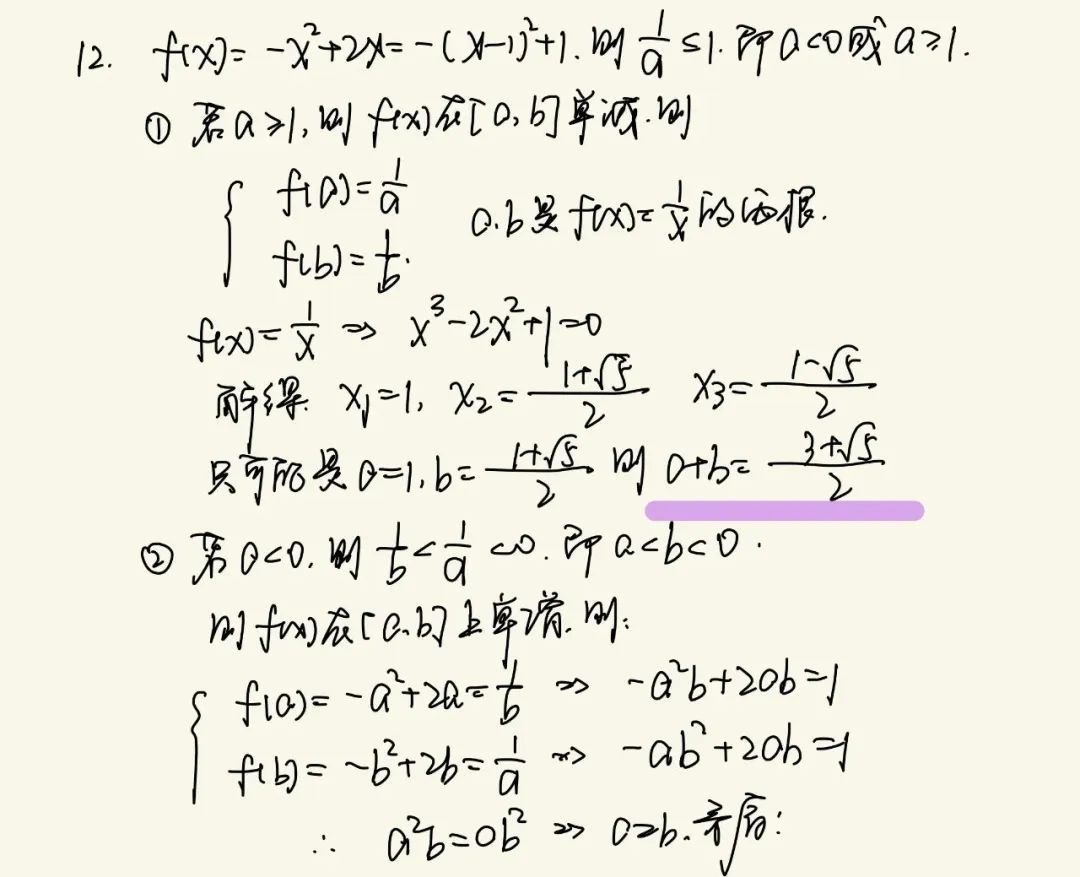 12. f(x)= -x²+2x= -(x-1)²+1. 则 1/a ≤1. 即 a<0或 a≥1.
① 若a≥1, 则 f(x)在[a,b]单减. 则
{ f(a)=1/a
a.b是 f(x)=1/x 的两根.
f(b)=1/b.
f(x)=1/x ⇒ x³-2x²+1=0
解得: x₁=1, x₂=(1+√5)/2 x₃=(1-√5)/2
只可能是 a=1, b=(1+√5)/2 则 a+b=(3+√5)/2
② 若 a<0. 则 1/b<1/a<0. 即 a<b<0.
则 f(x)在[a.b]上单增. 则:
{ f(a)= -a²+2a=1/b ⇒ -a²b+2ab=1
f(b)= -b²+2b=1/a ⇒ -ab²+2ab=1
∴ a²b=ab² ⇒ a=b. 矛盾!